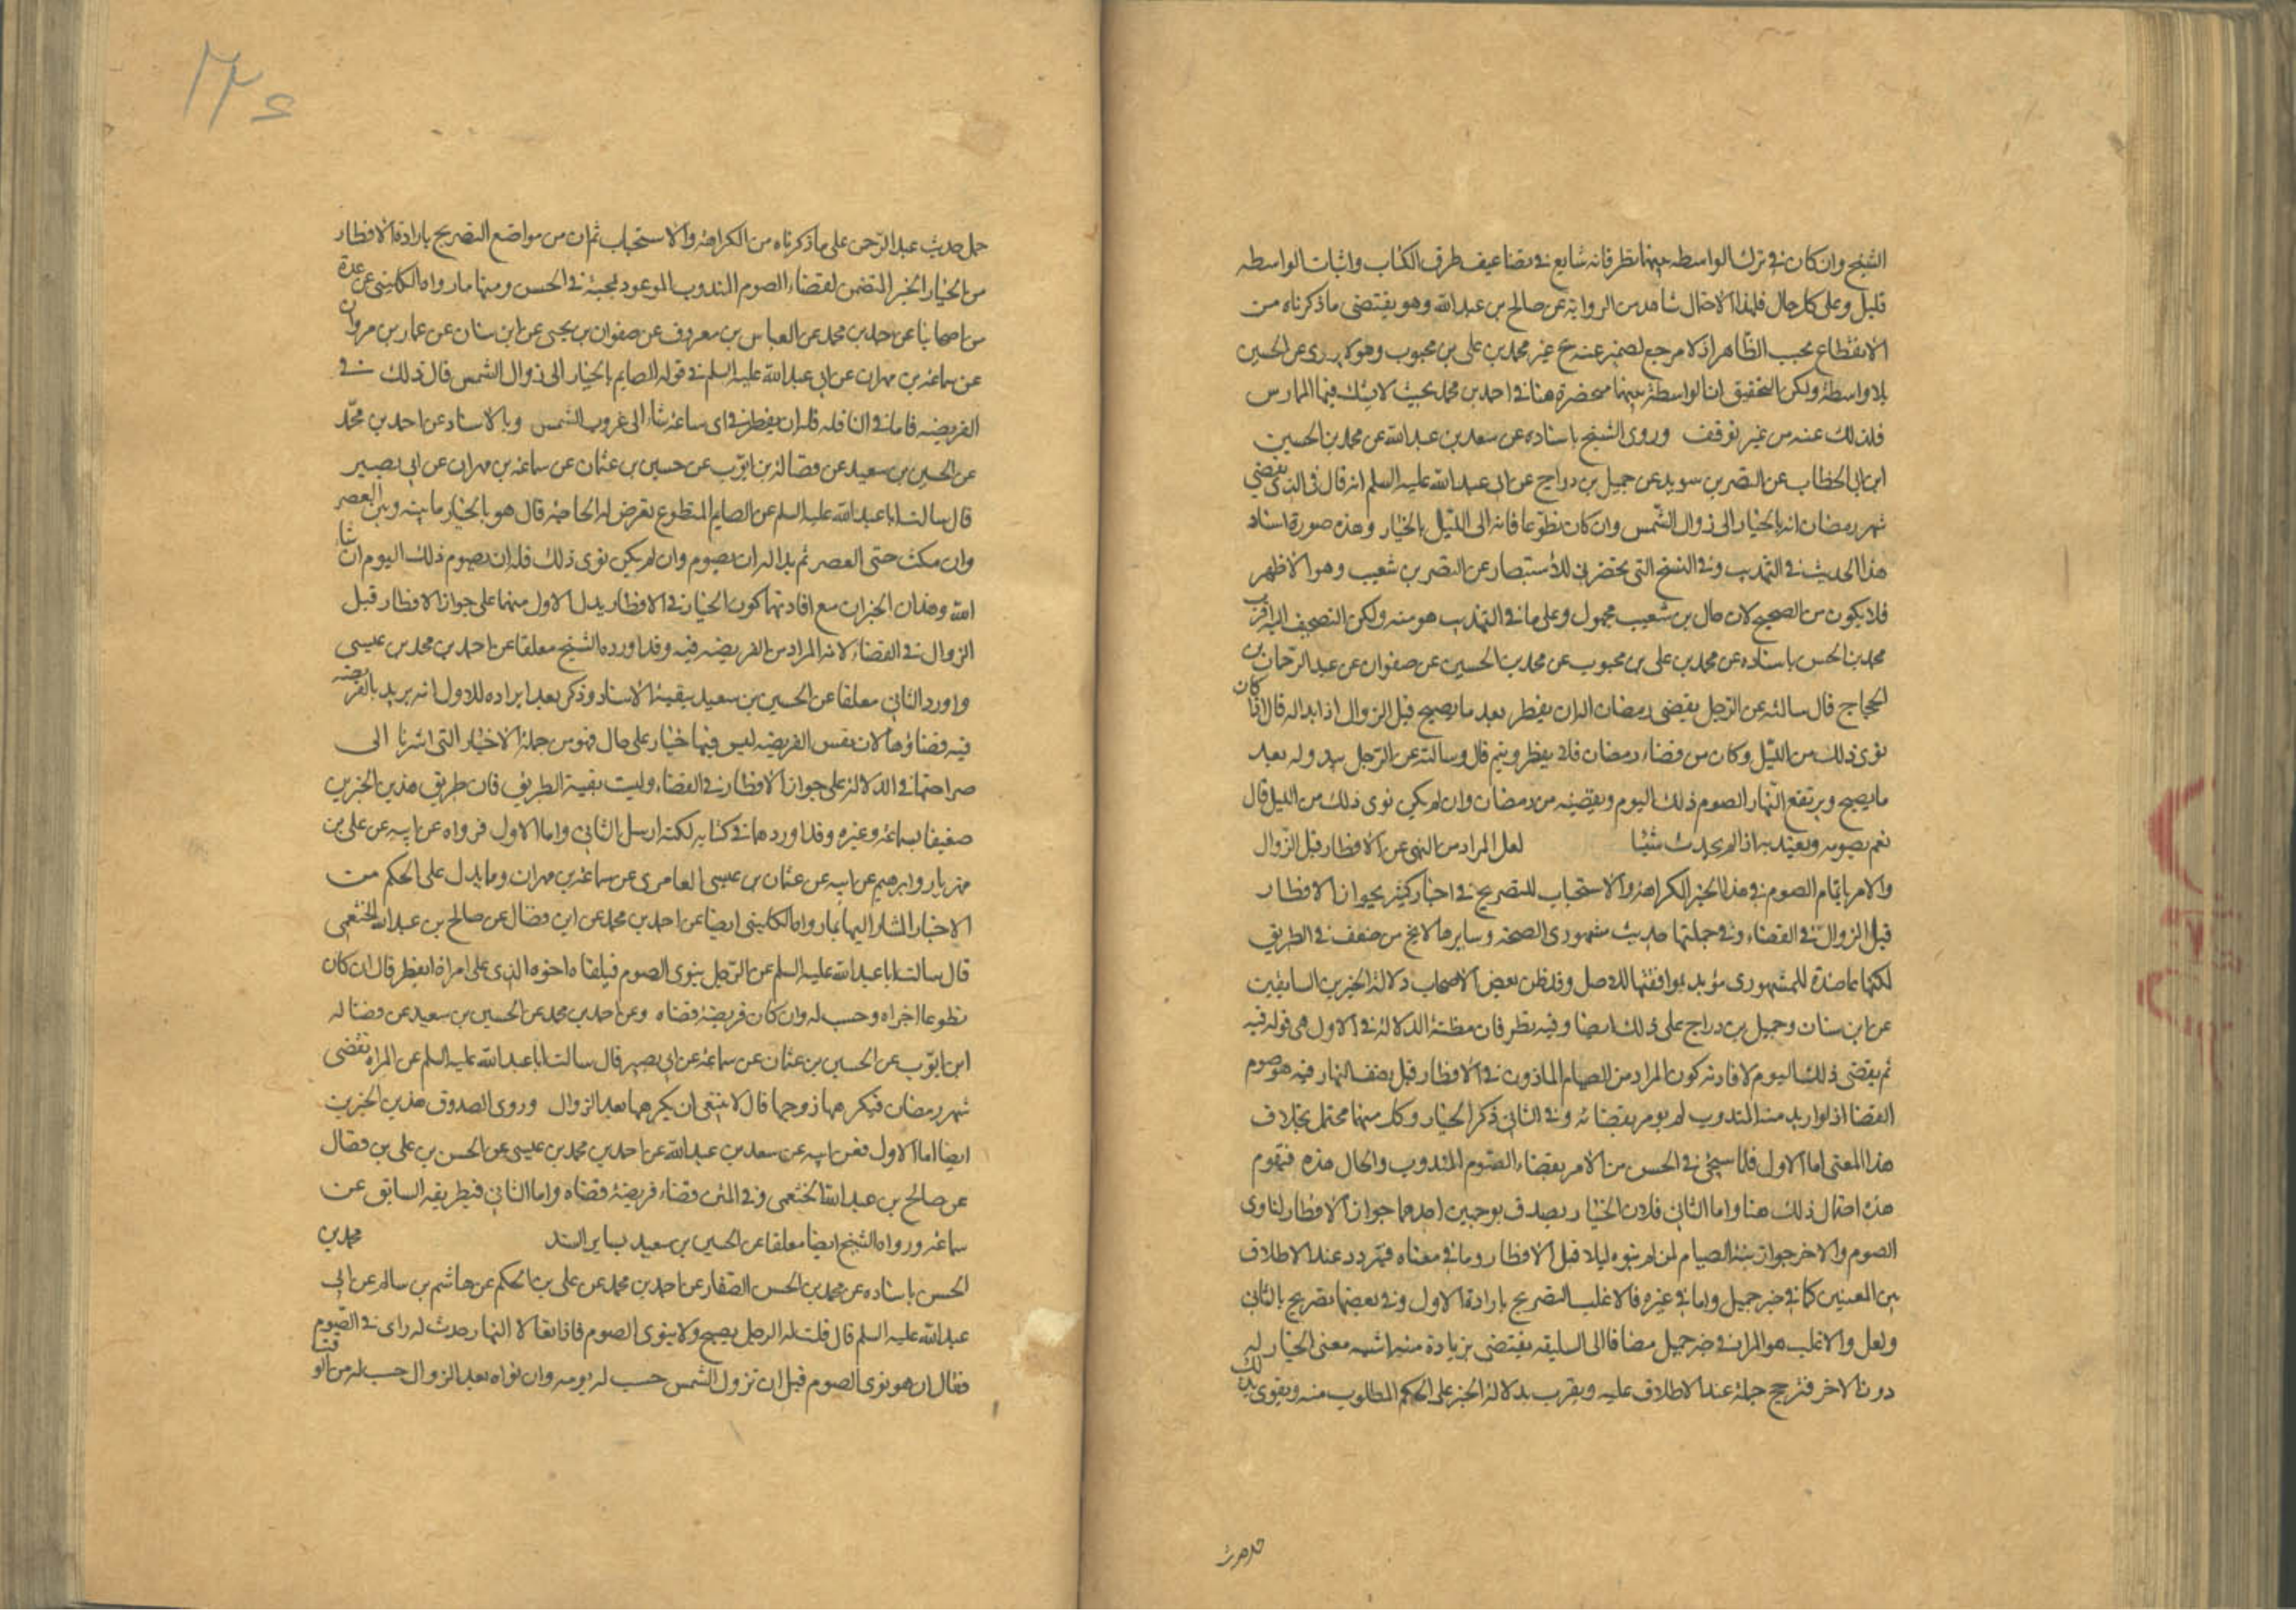 الشيخ وان كان في ترك الواسطه بينهما نظر فانه شايع في تضاعيف طرق الكتاب واثبات الواسطه
قليل وعلى كل حال فلهذا الاحتمال شاهد من الرواية عن صالح بن عبد الله وهو يقتضى ما ذكرناه من
الانقطاع بحسب الظاهر اذ لا مرجع لضمير عنه ح غير محمد بن على بن محبوب وهو لا يروى عن الحسين
بلا واسطة ولكن التحقيق ان الواسطة بينهما منحصرة هنا في احمد بن محمد بحيث لا يشك فيها الممارس
فلذلك عنه من غير توقف وروى الشيخ باسناده عن سعد بن عبد الله عن محمد بن الحسين
ابن ابى الخطاب عن النضر بن سويد عن جميل بن دراج عن ابى عبد الله عليه السلم انه قال في الذى يقضي
شهر رمضان انه بالخيار الى زوال الشمس وان كان تطوعا فانه الى الليل بالخيار وهذه صورة اسناد
هذا الحديث في التهذيب وفي النسخ التى تحضرني للاستبصار عن النضر بن شعيب وهو الاظهر
فلا يكون من الصحيح لان حال بن شعيب مجهول وعلى ما في التهذيب هو منه ولكن التصحيف اليه اقرب
محمد بن الحسن باسناده عن محمد بن على بن محبوب عن محمد بن الحسين عن صفوان عن عبد الرحمان بن
الحجاج قال سالته عن الرجل يقضى رمضان اله ان يفطر بعد ما يصبح قبل الزوال اذا بدا له قال اذا كان
نوى ذلك من الليل وكان من قضاء رمضان فلا يفطر ويتم قال وسالته عن الرجل يبدو له بعد
ما يصبح ويرتفع النهار الصوم ذلك اليوم ويقضيه من رمضان وان لم يكن نوى ذلك من الليل قال
نعم يصومه ويعتد به اذا لم يحدث شيئا لعل المراد من النهى عن الافطار قبل الزوال
والامر باتمام الصوم في هذا الخبر الكراهة والاستحباب للتصريح في اخبار كثيرة بجواز الافطار
قبل الزوال في القضاء وفي جملتها حديث مشهورى الصحة وسايرها لا يخ من ضعف في الطريق
لكنها عاضدة للمشهورى مؤيد بموافقتها للاصل وقد ظن بعض الاصحاب دلالة الخبرين السابقين
عن ابن سنان وجميل بن دراج على ذلك ايضا وفيه نظر فان مظنة الدلالة في الاول هى قوله فيه
ثم يقضى ذلك اليوم لافادته كون المراد من الصيام الماذون في الافطار قبل نصف النهار فيه هو صوم
القضا اذ لو اريد منه المندوب لم يومر بقضائه وفي الثانى ذكر الخيار وكل منهما محتمل بخلاف
هذا المعنى اما الاول فلما سيجئ في الحسن من الامر بقضاء الصوم المندوب والحال هذه فيقوم
هذه احتمال ذلك هنا واما الثاني فلان الخيار يصدق بوجهين احدهما جواز الافطار لناوى
الصوم والاخر جواز نية الصيام لمن لم ينوه ليلا قبل الافطار وما في معناه فيتردد عند الاطلاق
بين المعنيين كما في خبر جميل واما في غيره فالاغلب التصريح بارادة الاول وفي بعضها تصريح بالثانى
ولعل والاغلب هو المراد في خبر جميل مضافا الى السليقه يقتضى بزيادة معنى الخيار له
دون الاخر فترجح حمله عند الاطلاق عليه ويقرب بدلالة الخبر على الحكم المطلوب منه ويقوى بذلك
حمل حديث
۲۲۶
حمل حديث عبد الرحمن على ما ذكرناه من الكراهة والاستحباب ثم ان من مواضع التصريح بارادة الافطار
من الخيار الخبر المتضمن لقضاء الصوم المندوب الموعود بمجيئه في الحسن ومنها ما رواه الكلينى عن عدة
من اصحابنا عن احمد بن محمد عن العباس بن معروف عن صفوان بن يحيى عن ابن سنان عن عمار بن مروان
عن سماعة بن مهران عن ابى عبد الله عليه السلم في قوله الصايم بالخيار الى زوال الشمس قال ذلك في
الفريضه فاما في النافله فله ان يفطر في اى ساعة شاء الى غروب الشمس وبالاسناد عن احمد بن محمد
عن الحسين بن سعيد عن فضالة بن ايوب عن حسين بن عثمان عن سماعة بن مهران عن ابى بصير
قال سالت ابا عبد الله عليه السلم عن الصايم المتطوع تعرض له الحاجة قال هو بالخيار ما بينه وبين العصر
وان مكث حتى العصر ثم بدا له ان يصوم وان لم يكن نوى ذلك فله ان يصوم ذلك اليوم ان شاء
الله وهذان الخبران مع افادتهما كون الخيار في الافطار يدل الاول منهما على جواز الافطار قبل
الزوال في القضاء لانه المراد من الفريضه فيه وقد اورده الشيخ معلقا عن احمد بن محمد بن عيسى
واورد الثانى معلقا عن الحسين بن سعيد ببقية الاسناد وذكر بعد ايراده للاول انه يريد بالفريضه
فيه قضاؤها لان نفس الفريضه ليس فيها خيار على حال فهو من جملة الاخبار التى اشرنا الى
صراحتها في الدلالة على جواز الافطار في القضاء وليت بقية الطريق فان طريق هذين الخبرين
ضعيف بسماعة وغيره وقد اوردهما في كتابه لكنه ارسل الثاني واما الاول فرواه عن ابيه عن على بن
مهزيار وابرهيم عن ابيه عن عثمان بن عيسى العامرى عن سماعة بن مهران ومما يدل على الحكم من
الاخبار المشار اليها ما رواه الكلينى ايضا عن احمد بن محمد عن ابن فضال عن صالح بن عبد الله الخثعمى
قال سالت ابا عبد الله عليه السلم عن الرجل ينوى الصوم فيلقاه اخوه الذى على امراة ايفطر قال ان كان
تطوعا اجزاه وحسب له وان كان فريضة قضاه وعن احمد بن محمد عن الحسين بن سعيد عن فضاله
ابن ايوب عن الحسين بن عثمان عن سماعة عن ابى بصير قال سالت ابا عبد الله عليه السلم عن المراه تقضى
شهر رمضان فيكرهها زوجها قال لا ينبغى ان يكرهها بعد الزوال وروى الصدوق هذين الخبرين
ايضا اما الاول فعن ابيه عن سعد بن عبد الله عن احمد بن محمد بن عيسى عن الحسن بن على بن فضال
عن صالح بن عبد الله الخثعمى وفي المتن قضاء فريضة قضاه واما الثانى فبطريقه السابق عن
سماعة ورواه الشيخ ايضا معلقا عن الحسين بن سعيد بساير السند محمد بن
الحسن باسناده عن محمد بن الحسن الصفار عن احمد بن محمد عن على بن الحكم عن هاشم بن سالم عن ابى
عبد الله عليه السلم قال قلت له الرجل يصبح ولا ينوى الصوم فاذا تعالا النهار حدث له راى في الصوم
فقال ان هو نوى الصوم قبل ان تزول الشمس حسب له يومه وان نواه بعد الزوال حسب له من الوقت